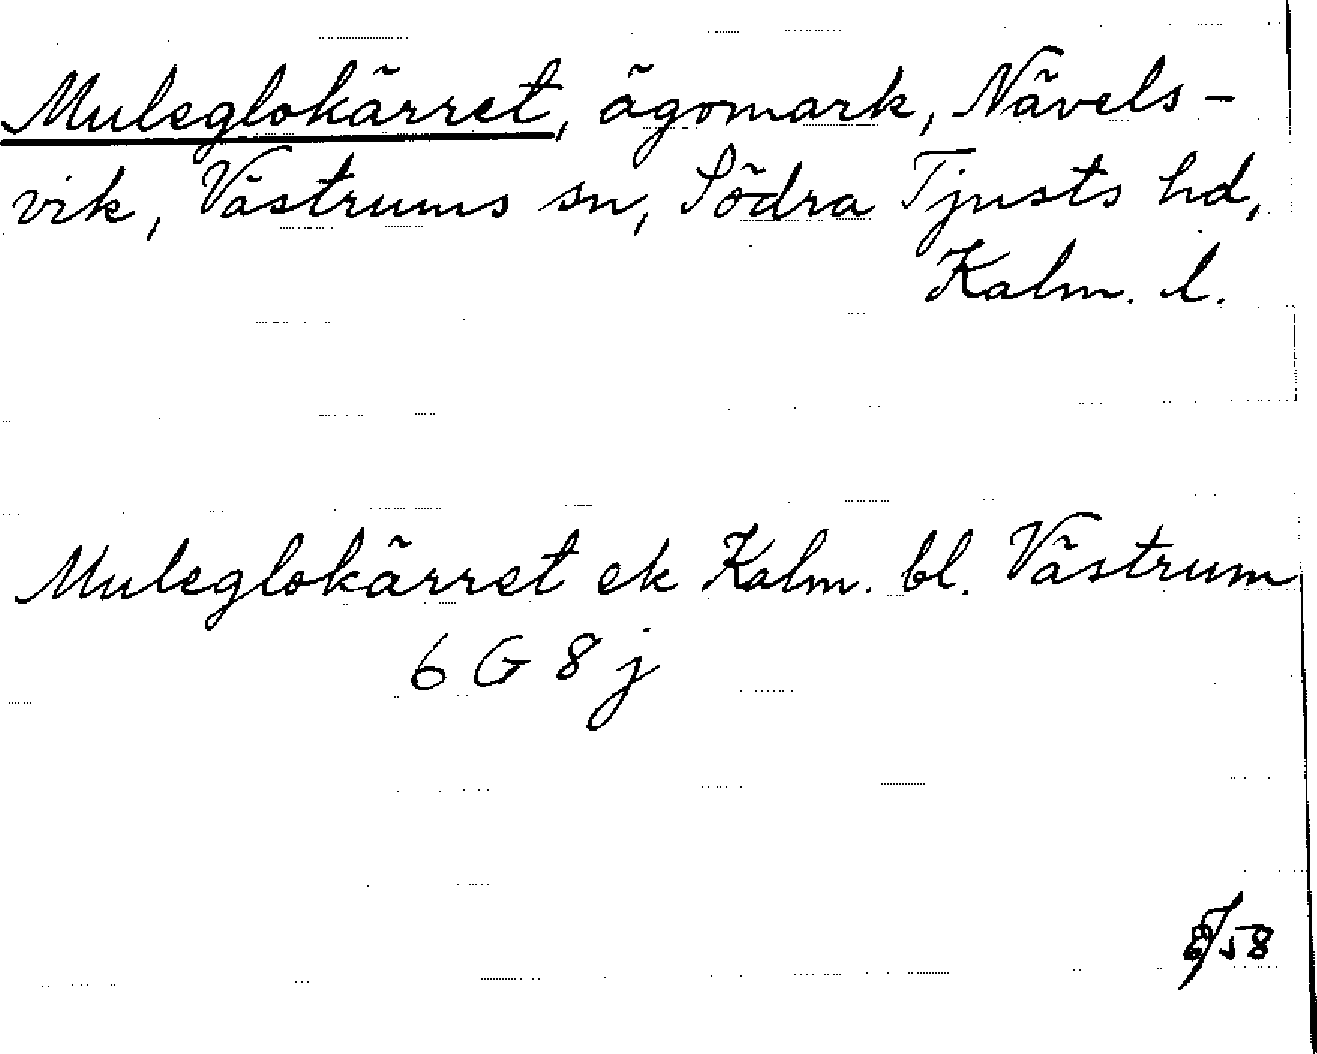 Muleglokärret, ägomark, Nävels-
vik, Västrums sn, Södra Tjusts hd,
Kalm. l.
Muleglokärret ek Kalm. bl. Västrum
6 G 8 j
58